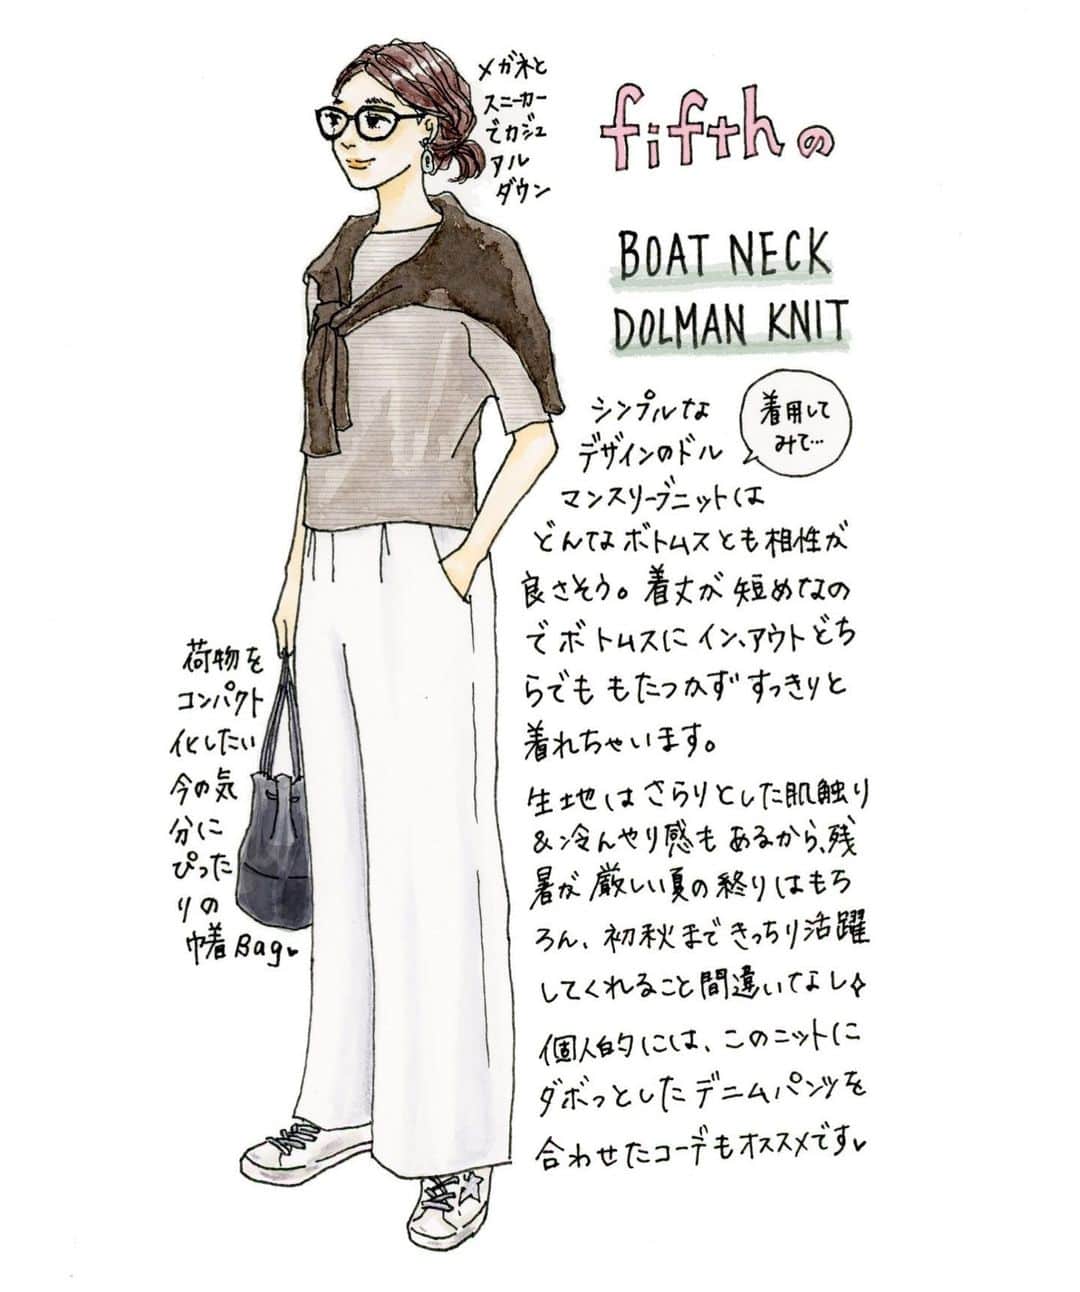 メガネと
スニーカー
でカジュ
アル
ダウン
fifthの
BOAT NECK
DOLMAN KNIT
着用して
みて…
シンプルな
デザインのドル
マンスリーブニットは
どんなボトムスとも相性が
良さそう。着丈が短めなの
でボトムスにイン、アウトどち
らでももたつかずすっきりと
着れちゃいます。
生地はさらりとした肌触り
&冷んやり感もあるから、残
暑が厳しい夏の終りはもち
ろん、初秋まできっちり活躍
してくれること間違いなし✧
個人的には、このニットに
ダボっとしたデニムパンツを
合わせたコーデもオススメです♥
荷物を
コンパクト
化したい
今の気
分に
ぴった
りの
巾着Bag♥